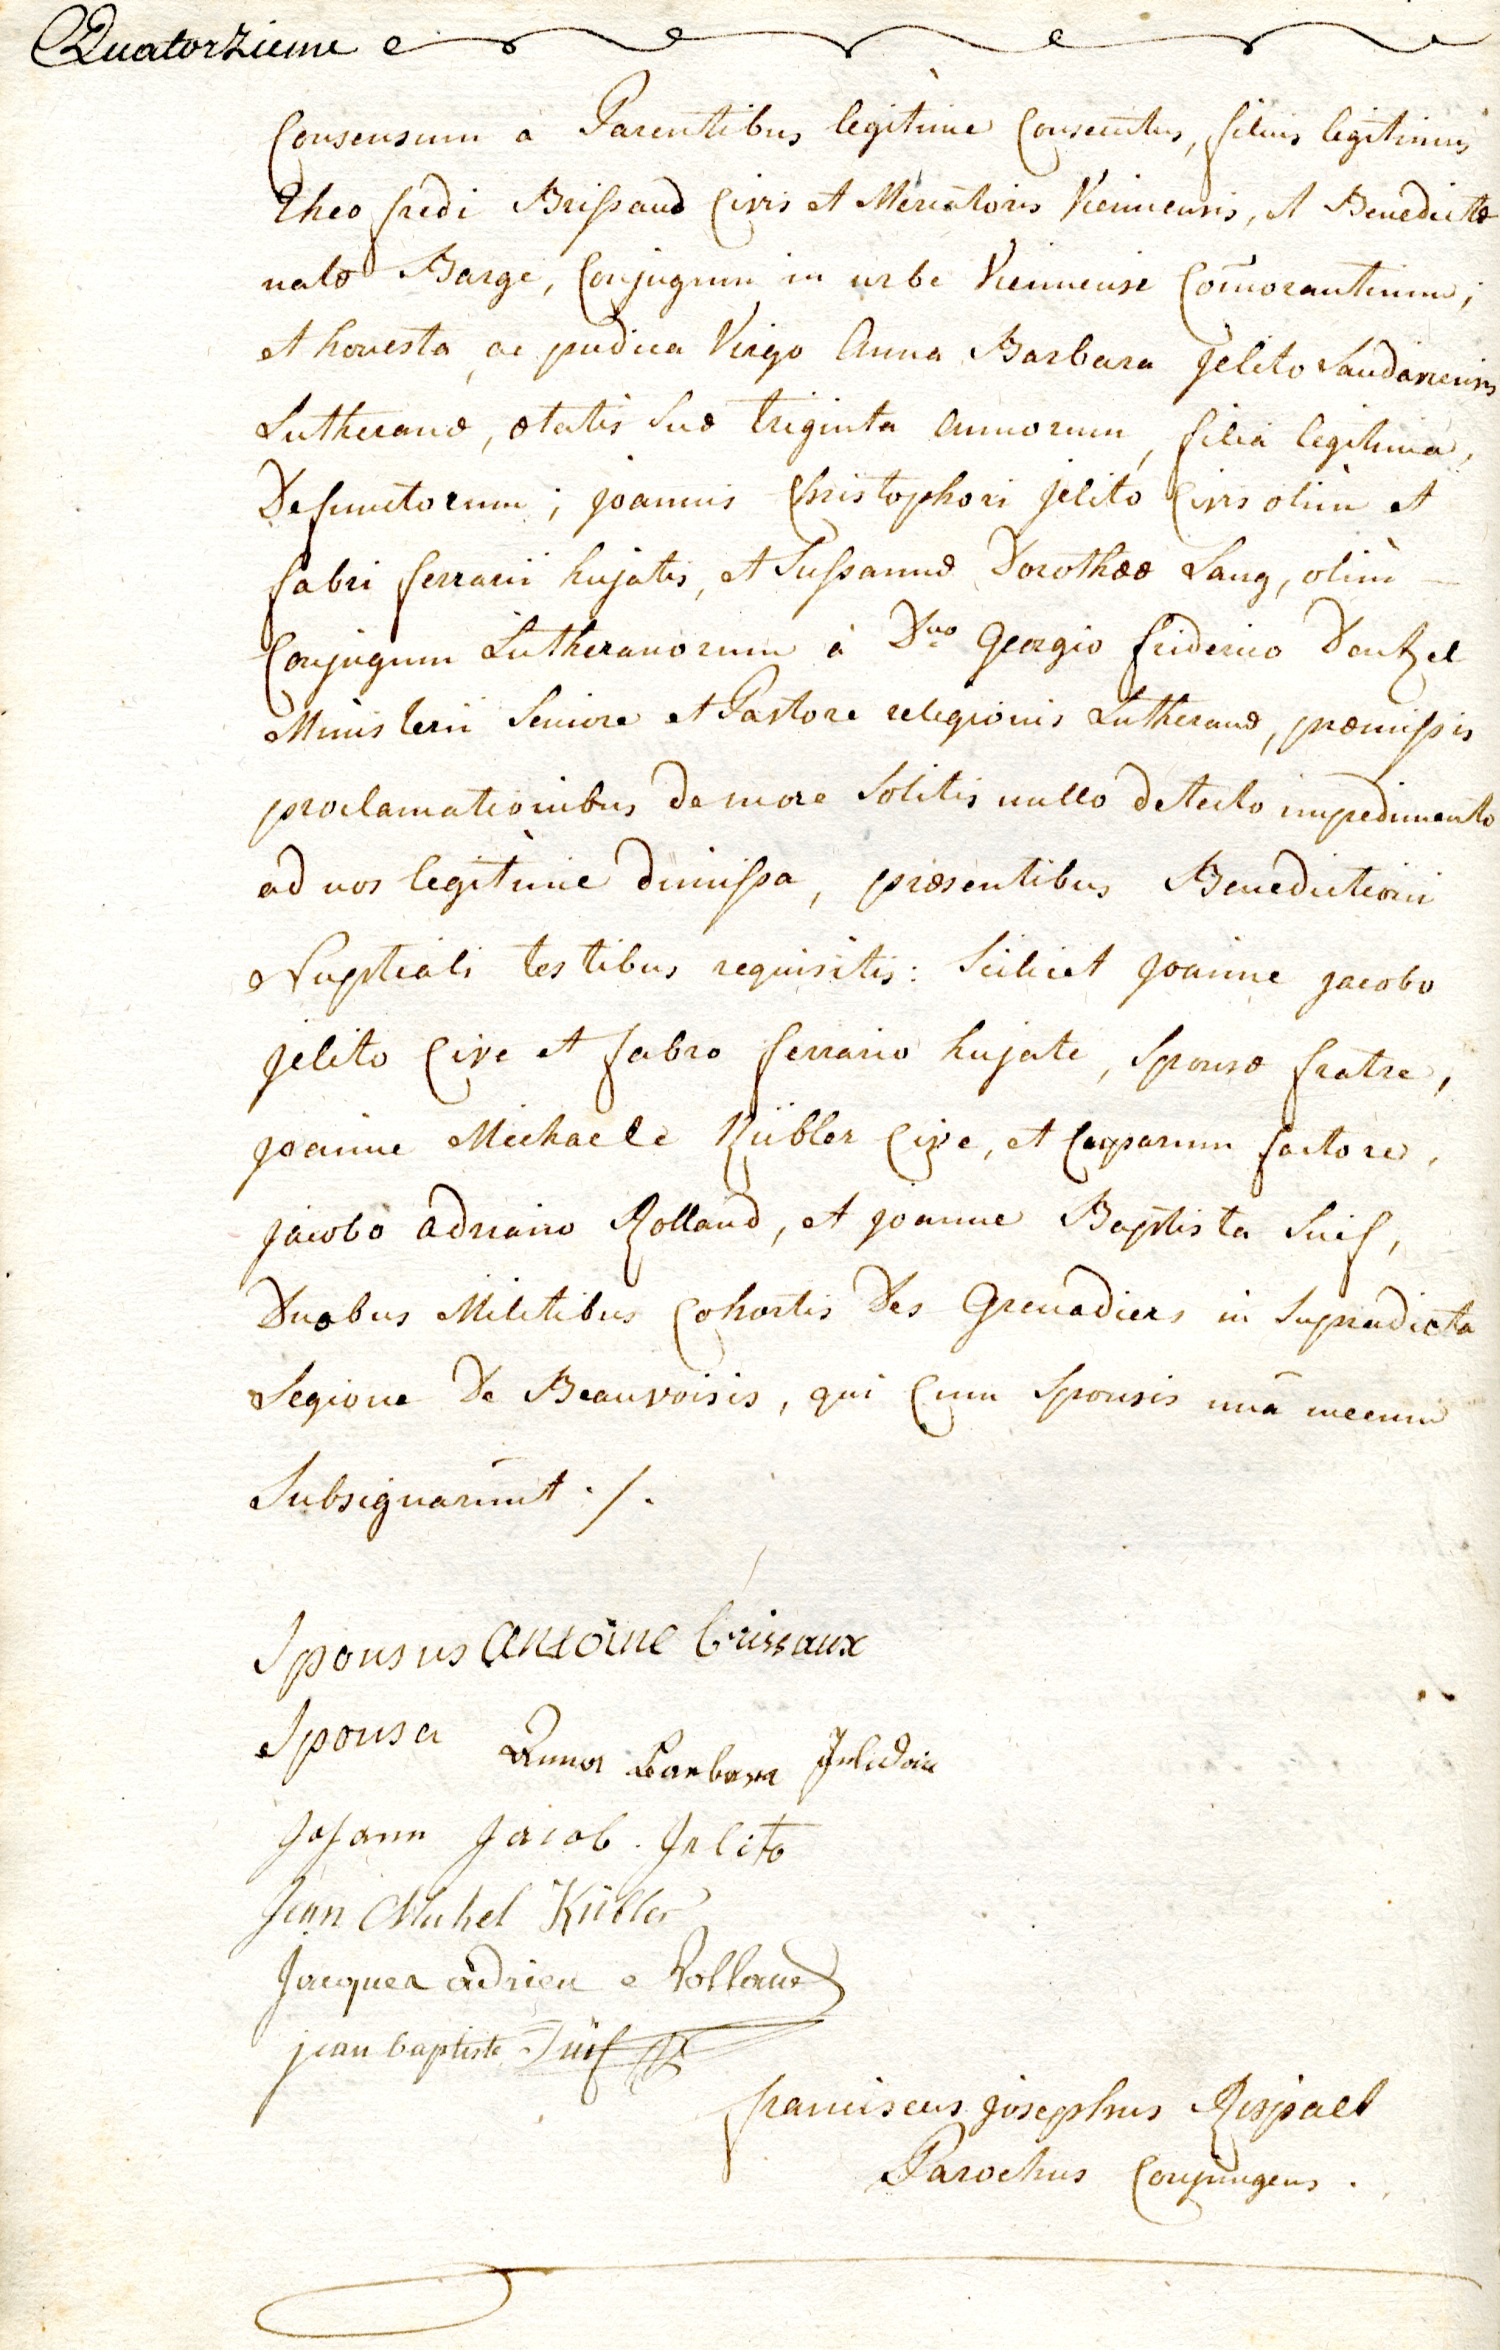 Quatorzieme
Consensum a Parentibus legitime Consecutus, filius legitimus
Theofredi Brissaud Civis et Mercatoris Viennensis, et Benedictæ
natæ Barge, Conjugum in urbe Viennense Com̄orantium;
et honesta ac pudica Virgo Anna Barbara Jelito Landaviensis
Lutheranæ, ætatis suæ triginta annorum, filia legitima,
Defunctorum; joannis Christophori Jelito Civis olim et
fabri ferrarii hujatis, et Sussannæ Dorothææ Lang, olim –
Conjugum Lutheranorum à Dno Georgio friderico Dentzel
Ministerii Seniore et Pastore religionis Lutheranæ, præmissis
proclamationibus de more Solitis nullo detecto impedimento
ad nos legitime dimissa, præsentibus Benedictioni
Nuptiali testibus requisitis: Scilicet joanne jacobo
Jelito Cive et fabro ferrario hujate, Sponsæ fratre,
joanne Michaele Kübler Cive, et Capparum factore,
jacobo adriano Rolland, et joanne Baptista Suif,
Duobus Militibus Cohortis Des Grenadiers in Supradicta
Legione De Beauvoisis, qui Cum Sponsis unā mecum
Subsignarunt ./.
Sponsus antoine brissaux
Sponsa Anna Barbara
Johann Jacob. Jelito
Jean Michel Kübler
Jacques adrien Rolland
jean baptiste Suif
franciscus josephus Rispalt
Parochus Conjungens.